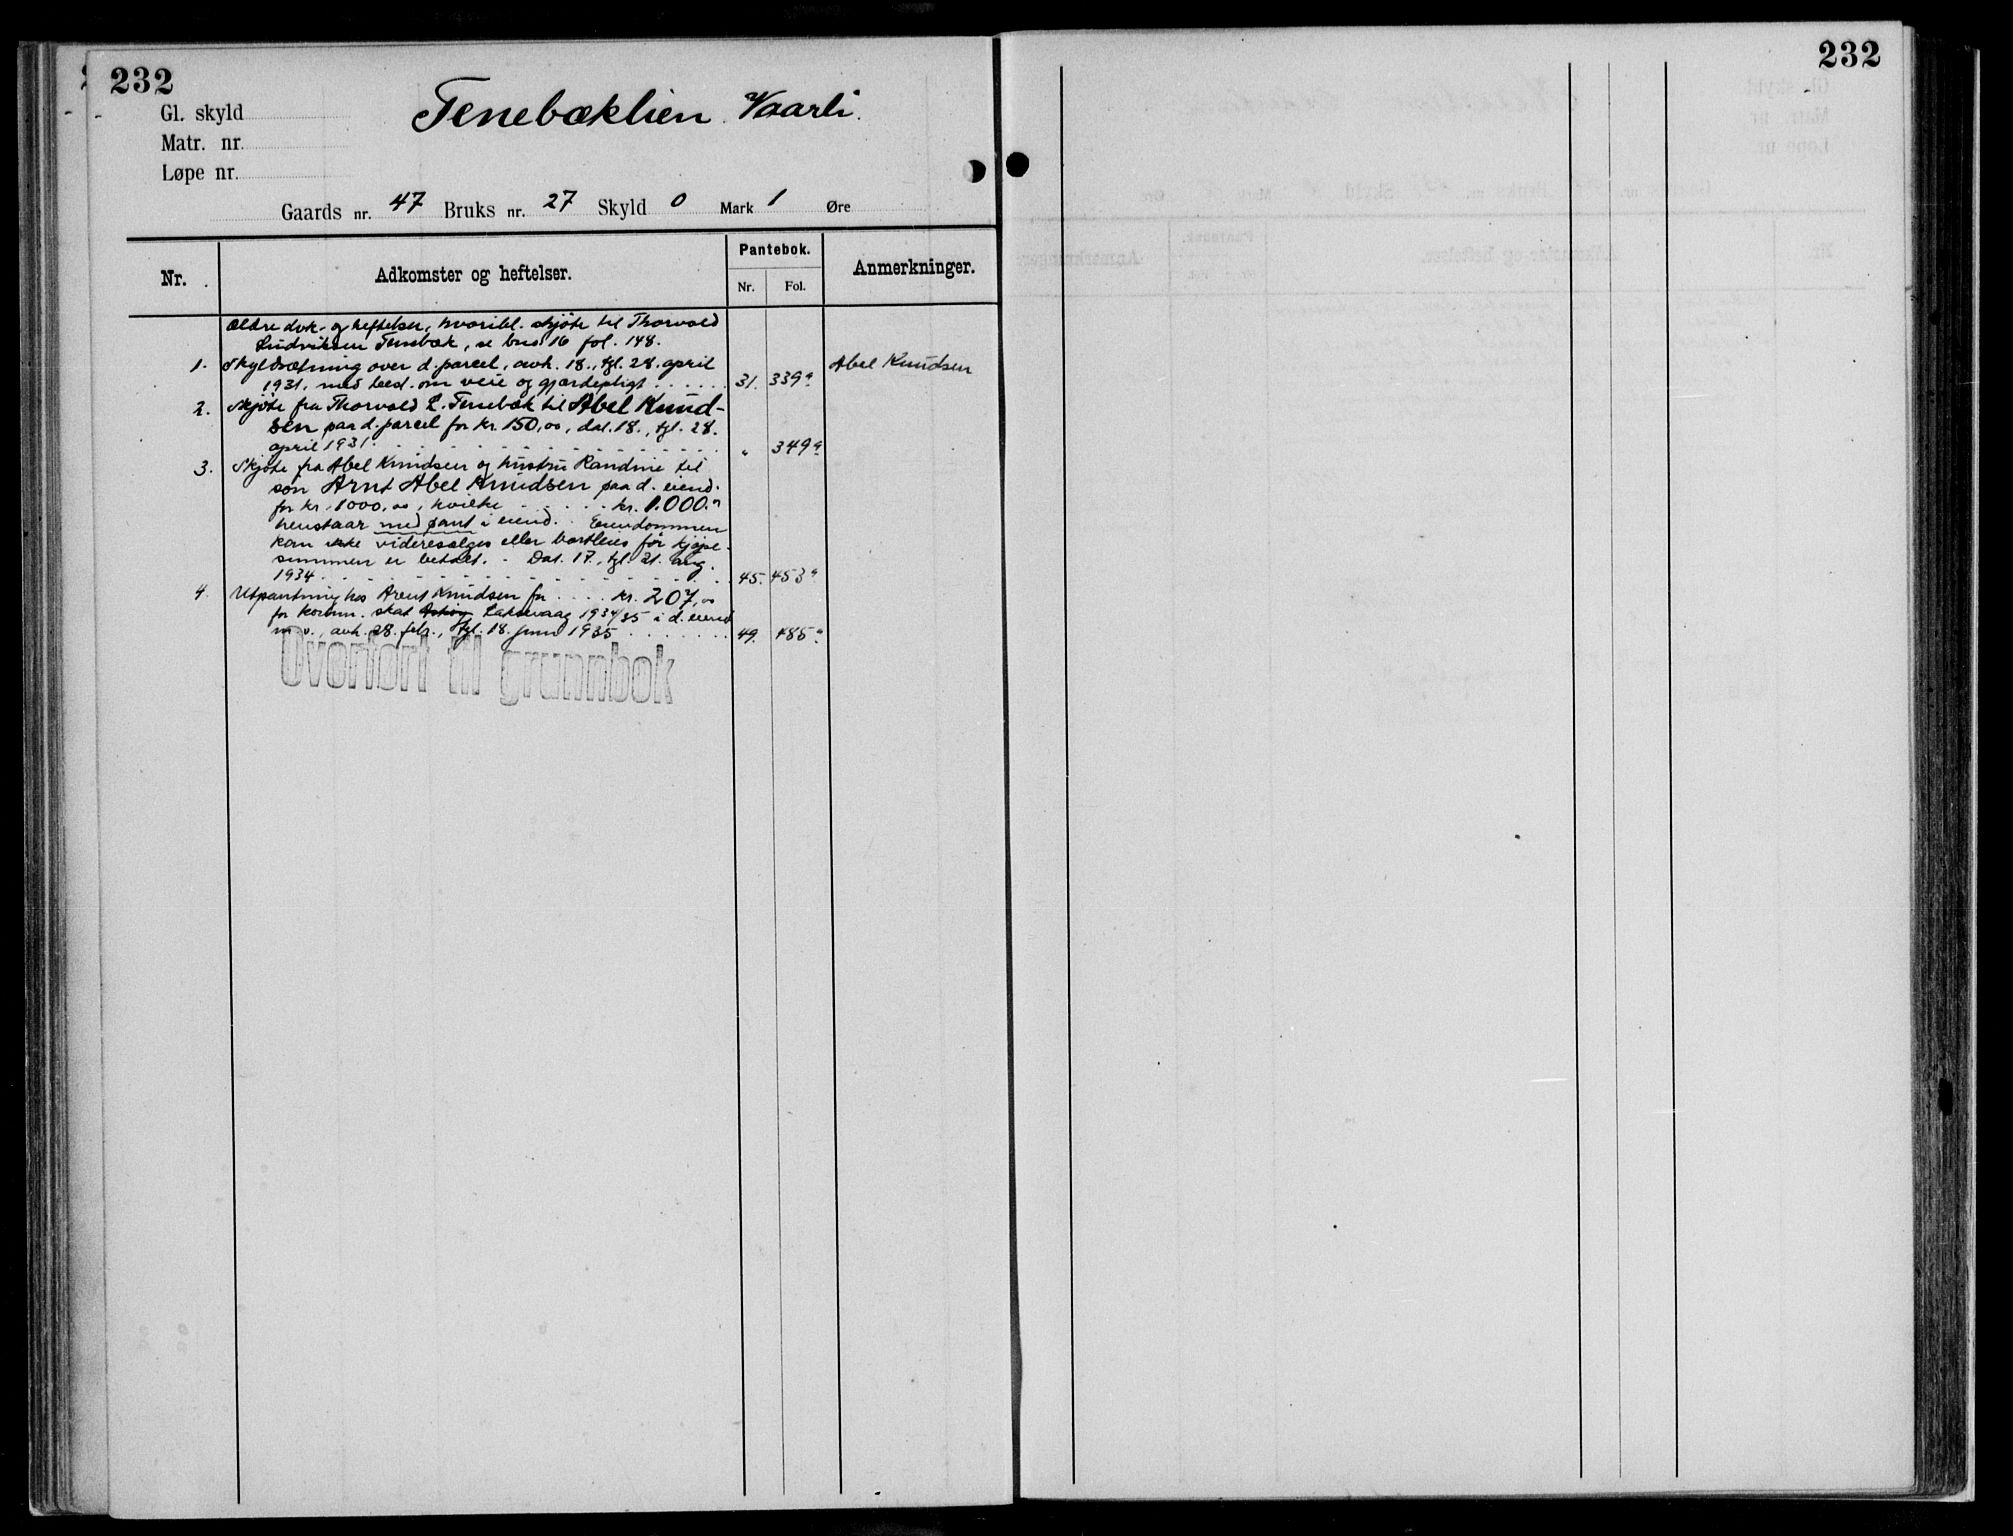 232
Gl. skyld
Matr. nr.
Løpe nr.
Tenebæklien Vaarli.
Gaards nr. 47 Bruks nr. 27 Skyld 0 Mark 1 Øre
Nr.
Adkomster og heftelser.
Pantebok.
Nr. Fol.
Anmerkninger.
Ældre dok- og heftelser, hvoribl. skjöte til Thorvald
Ludviksen Tenebæk, se bnr 16 fol. 148.
1. Skyldsætning over d. parcel, avh. 18., tgl. 28. april
1931, med best. om veie og gjærdepligt . . . . . . 31. 339a Abel Knudsen
2. Skjöte fra Thorvald L. Tenebæk til Abel Knud-
sen paa d. parcel for kr. 150,00, dat. 18., tgl. 28.
april 1931. " 349a
3. Skjöte fra Abel Knudsen og hustru Randine til
søn Arnt Abel Knudsen paa d. eiend.
for kr. 1000,00, hvilke . . . . . . kr. 1.000."
henstaar med pant i eiend. Eiendommen
kan ikke videresælges eller bortleies før kjøpe-
summen er betalt. - Dat. 17., tgl. 21. aug.
1934 45. 453a
4. Utpantning hos Arent Knudsen for . . . . kr. 207,00
for komm. skat Laksevaag 1934/35 i d. eiend
m.v., avh. 28. febr., tgl. 18. juni 1935 . . . . . . . 49. 485a
Overført til grunnbok
232